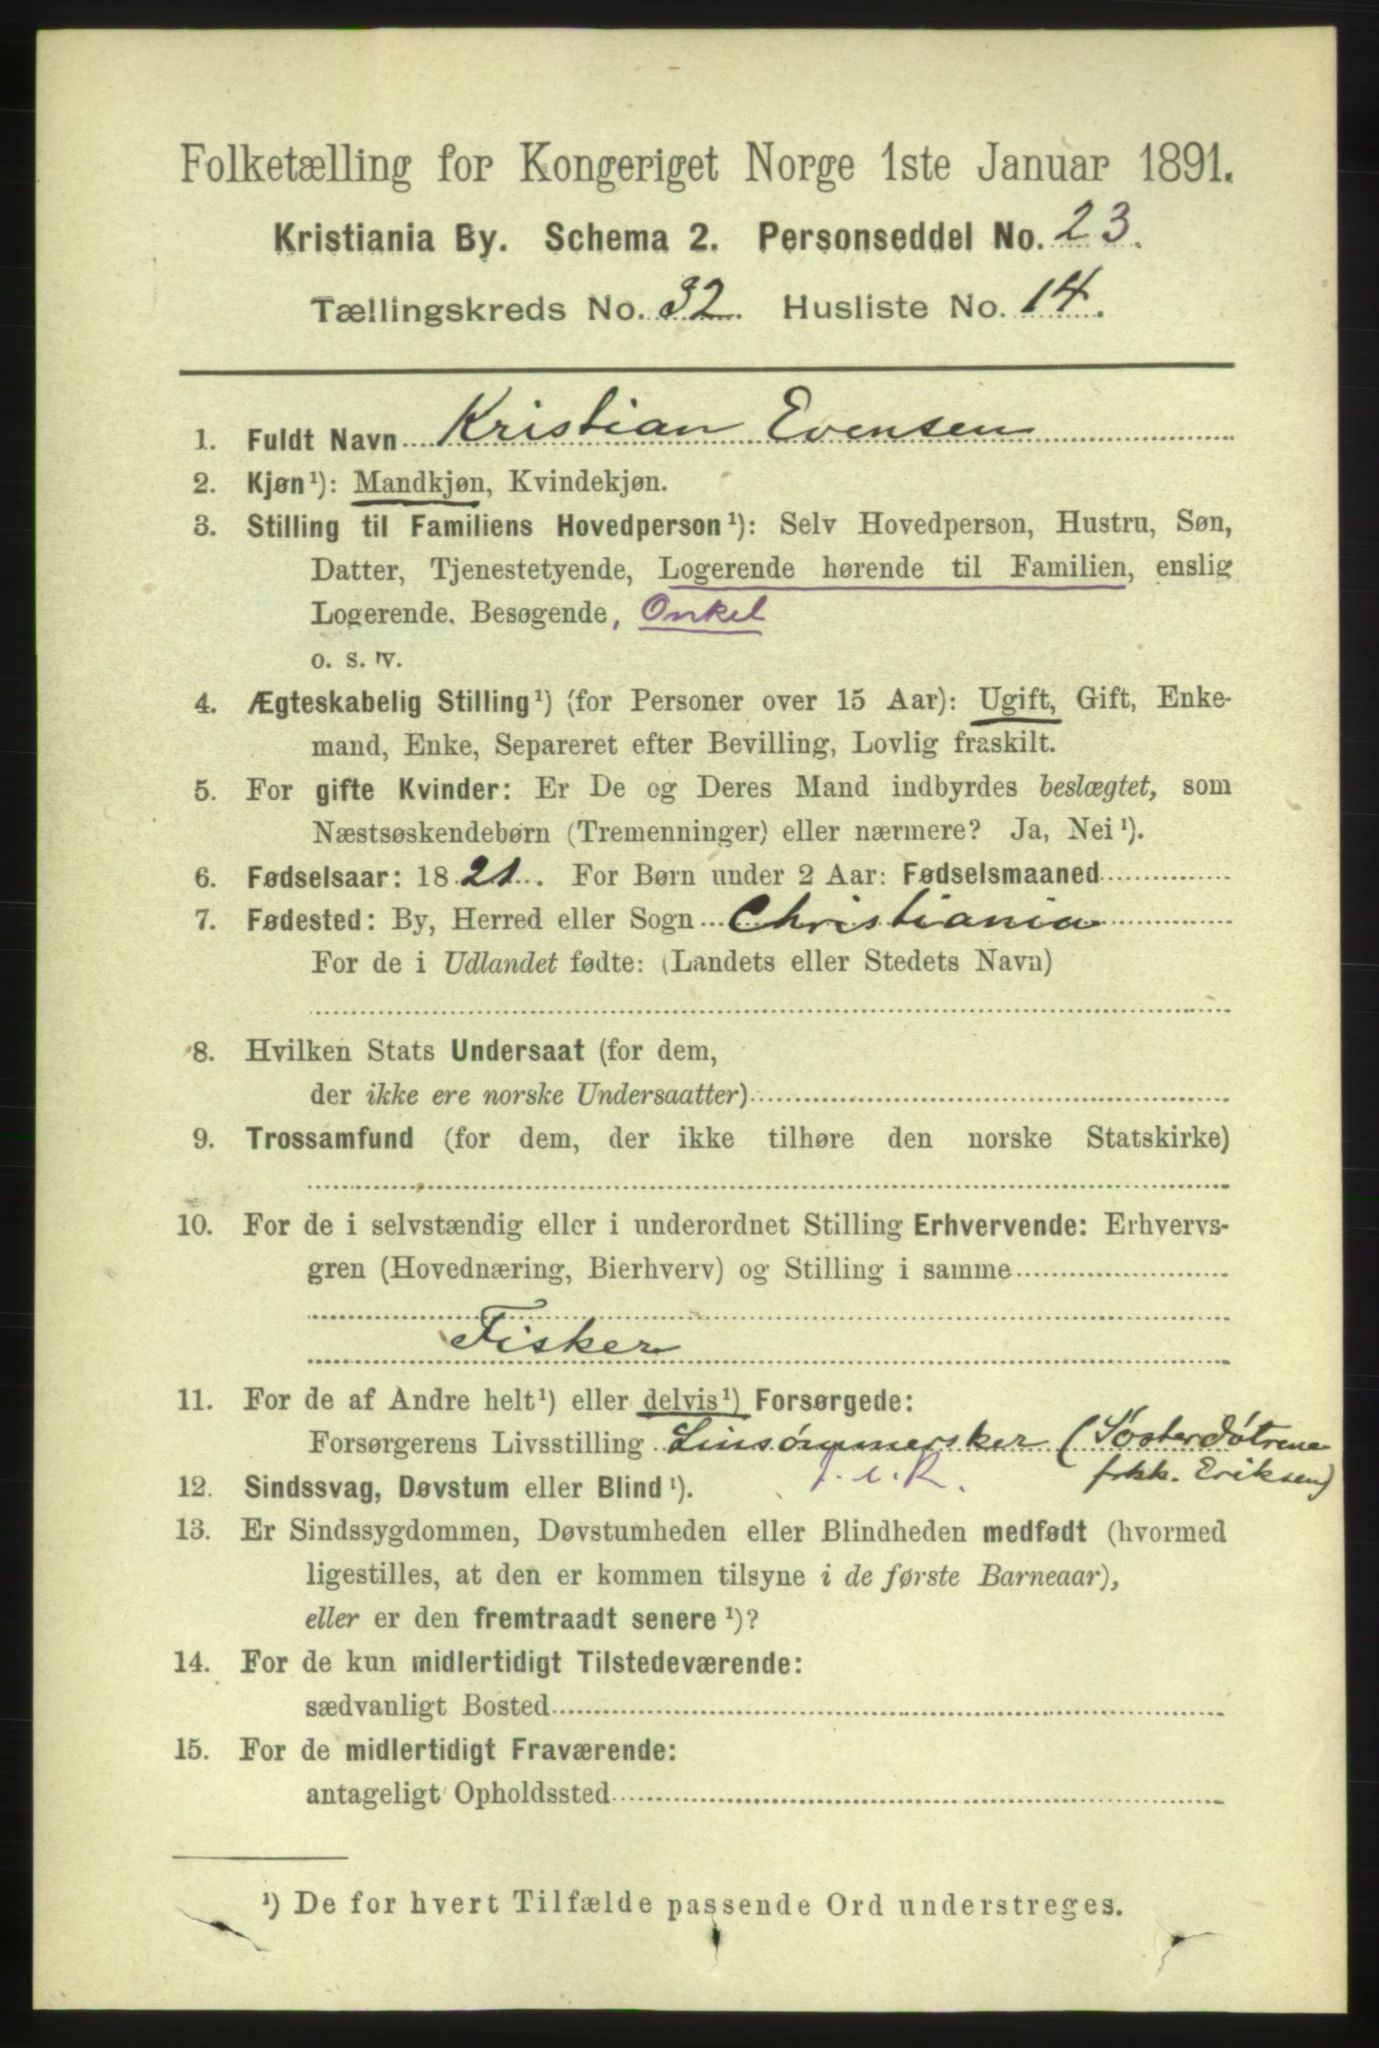 Folketælling for Kongeriget Norge 1ste Januar 1891.
Kristiania By. Schema 2. Personseddel No. 23.
Tællingskreds No. 32. Husliste No. 14.
1. Fuldt Navn Kristian Evensen
2. Kjøn¹): Mandkjøn, Kvindekjøn.
3. Stilling til Familiens Hovedperson¹): Selv Hovedperson, Hustru, Søn,
Datter, Tjenestetyende, Logerende hørende til Familien, enslig
Logerende, Besøgende, Onkel
o. s. v.
4. Ægteskabelig Stilling¹) (for Personer over 15 Aar): Ugift, Gift, Enke-
mand, Enke, Separeret efter Bevilling, Lovlig fraskilt.
5. For gifte Kvinder: Er De og Deres Mand indbyrdes beslægtet, som
Næstsøskendebørn (Tremenninger) eller nærmere? Ja, Nei¹).
6. Fødselsaar: 1821. For Børn under 2 Aar: Fødselsmaaned
7. Fødested: By, Herred eller Sogn Christiania
For de i Udlandet fødte: (Landets eller Stedets Navn)
8. Hvilken Stats Undersaat (for dem,
der ikke ere norske Undersaatter)
9. Trossamfund (for dem, der ikke tilhøre den norske Statskirke)
10. For de i selvstændig eller i underordnet Stilling Erhvervende: Erhvervs-
gren (Hovednæring, Bierhverv) og Stilling i samme
Fisker
11. For de af Andre helt¹) eller delvis¹) Forsørgede:
Forsørgerens Livsstilling Linsömmersker (Søsterdøtrene
frkk. Eriksen)
12. Sindssvag, Døvstum eller Blind¹).
13. Er Sindssygdommen, Døvstumheden eller Blindheden medfødt (hvormed
ligestilles, at den er kommen tilsyne i de første Barneaar),
eller er den fremtraadt senere¹)?
14. For de kun midlertidigt Tilstedeværende:
sædvanligt Bosted
15. For de midlertidigt Fraværende:
antageligt Opholdssted
¹) De for hvert Tilfælde passende Ord understreges.